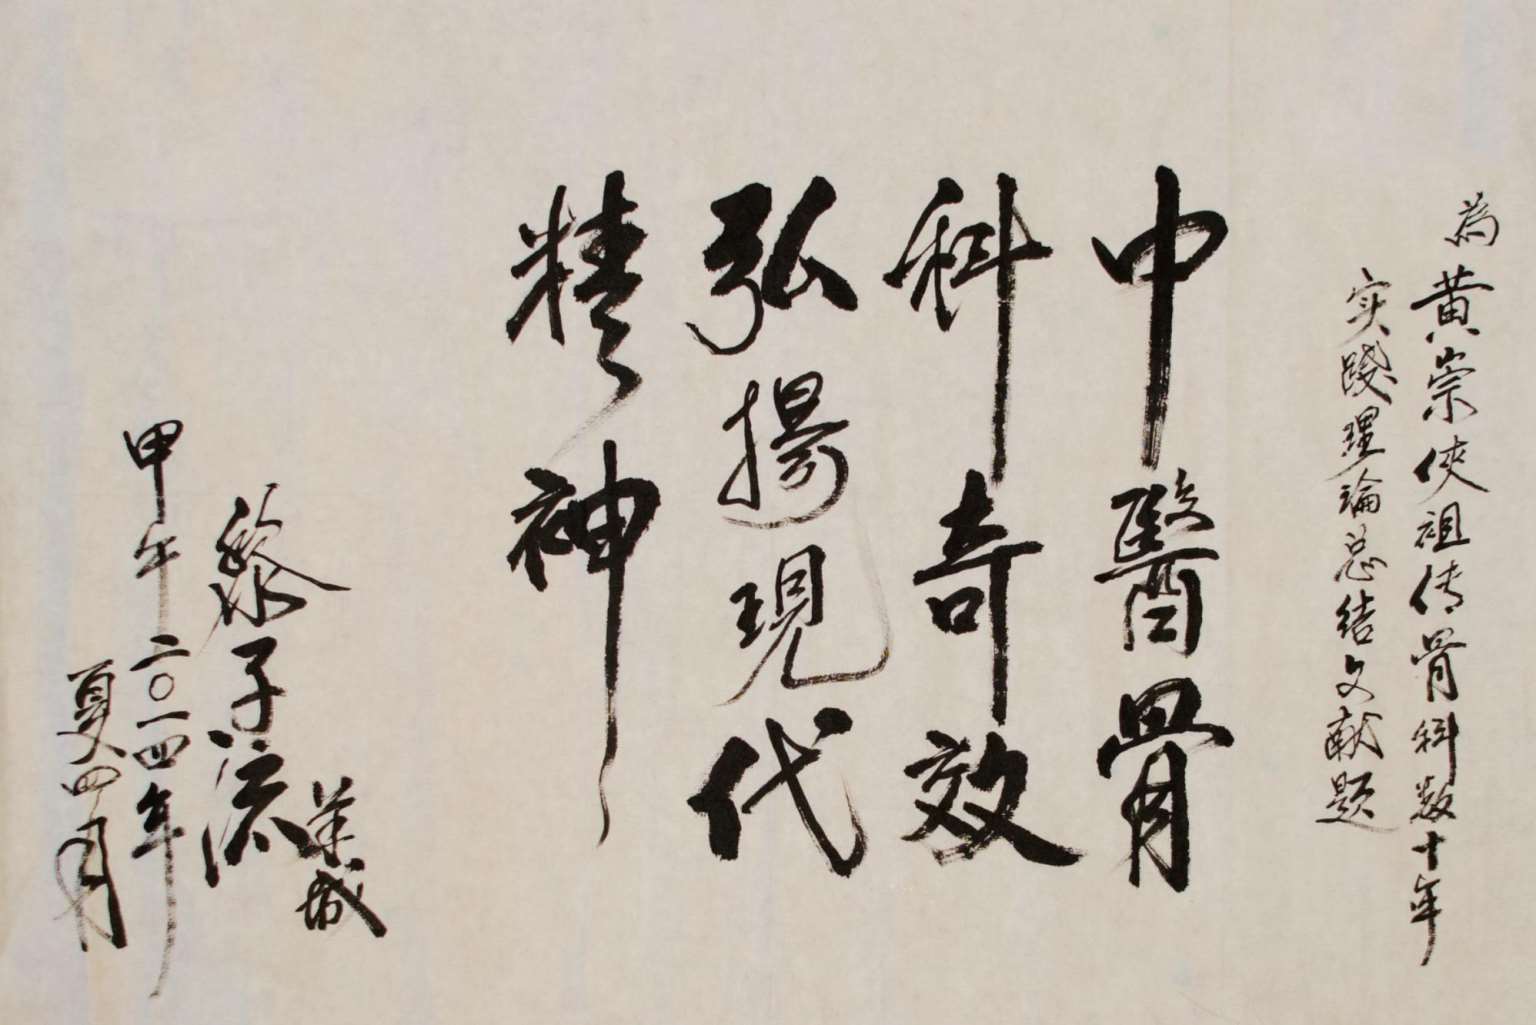 為黄崇俠祖传骨科数十年
实踐理論总结文献题
中醫骨
科奇效
弘揚現代
精神
黎子流
羊城
甲午二〇一四年
夏四月